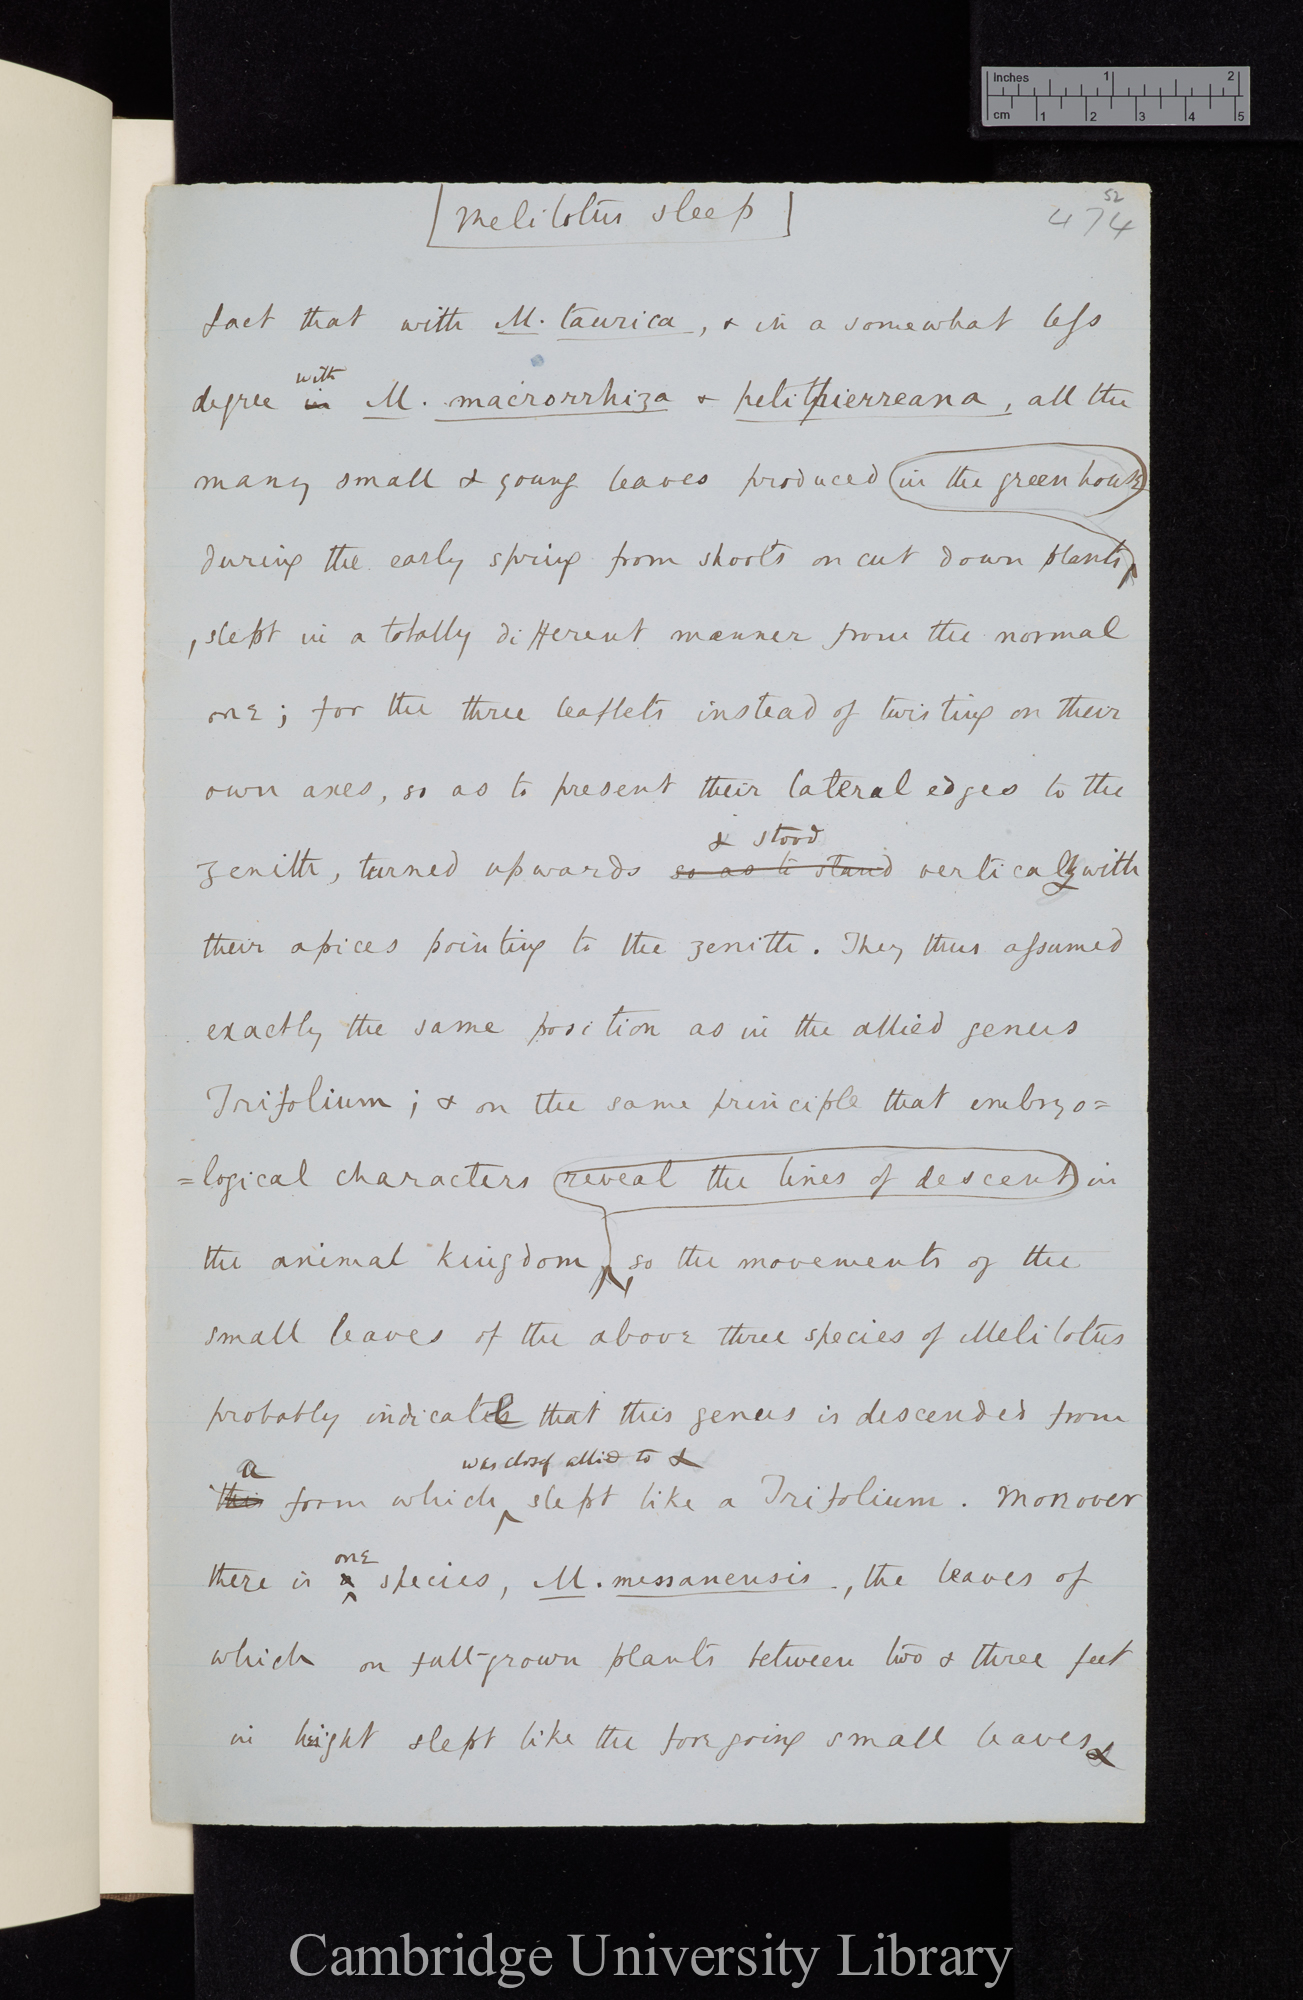 Inches 1 2
cm 1 2 3 4 5
[Melilotus sleep]
52
474
fact that with M. taurica, & in a somewhat less
with
degree in M. macrorrhiza & petitpierreana, all the
many small & young leaves produced in the green house
during the early spring from shoots on cut down plants
, slept in a totally different manner from the normal
one; for the three leaflets instead of twisting on their
own axes, so as to present their lateral edges to the
& stood
zenith, turned upwards so as to stand vertically with
their apices pointing to the zenith. They thus assumed
exactly the same position as in the allied genus
Trifolium; & on the same principle that embryo=
=logical characters reveal the lines of descent in
the animal kingdom, so the movements of the
small leaves of the above three species of Melilotus
probably indicate that this genus is descended from
a was closely allied to &
this form which slept like a Trifolium. Moreover
one
there is a species, M. messanensis, the leaves of
which on full-grown plants between two & three feet
in height slept like the foregoing small leaves &
Cambridge University Library